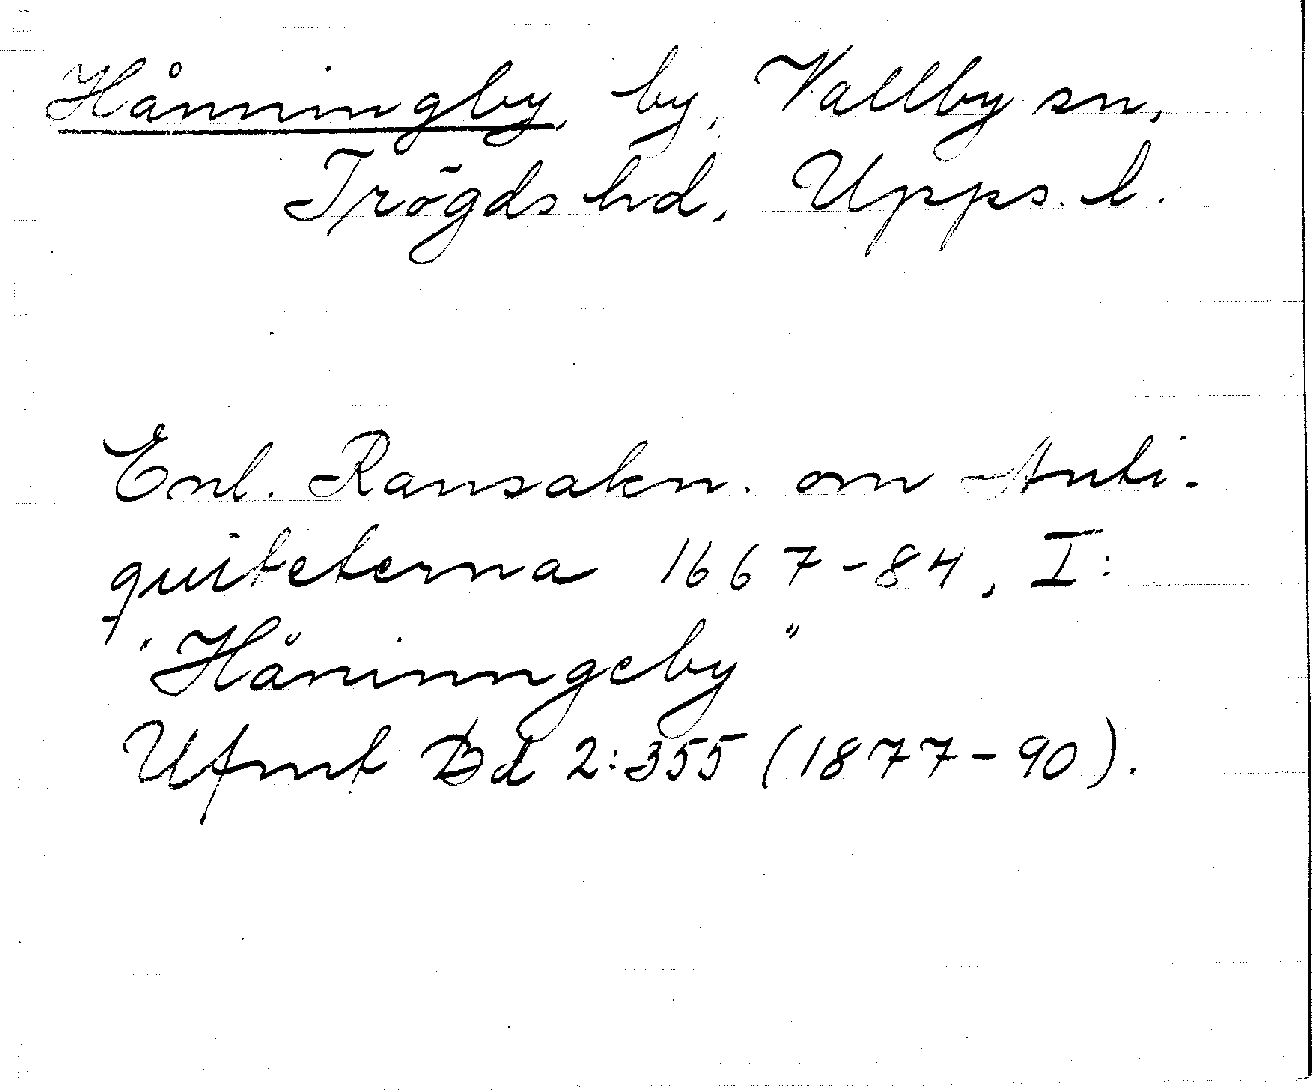 Hånningby, by, Vallby sn,
Trögds hd, Upps. l.
Enl. Ransakn. om Anti-
quiteterna 1667-84, I:
"Häninngeby"
Ufmt Bd 2:355 (1877-90).